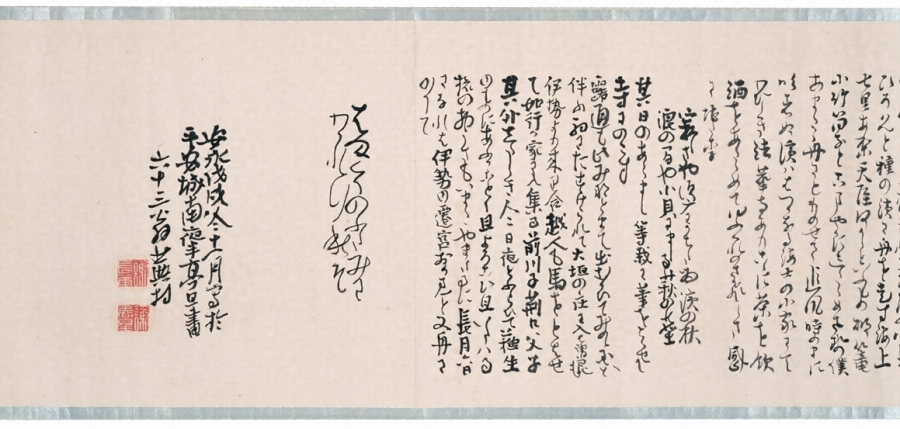 ひろはんと種の濱に舟を走す海上
七里あり天屋何かしといふもの破籠
小竹筒なとこまやかにしたゝめさせ僕
あまた舟にとりのせて追風時のまに
吹着ぬ濱はわつかなる海士の小家にて
侘しき法華寺あり爰に茶を飲
酒をあたゝめて夕くれのさひしさ感
に堪たり
寂しさや須磨にかちたる濱の秋
浪の間や小貝にましる萩の塵
其日のあらまし等栽に筆をとらせて
寺にのこす
露通も此みなとまて出むかひてみのゝ国へと
伴ふ駒にたすけられて大垣の庄に入は曽良
伊勢より来り合越人も馬をとはせ
て如行か家に入集る前川子荊口父子
其外したしき人々日夜とふらひて蘇生
のものにあふかことく且よろこひ且いたはる
旅の物うさもいまたやまさるに長月六日
になれは伊勢の遷宮おかまんと又舟に
のりて
蛤のふたみに
わかれ行秋そ
安永戊戌冬十一月写於
平安城南夜半亭且畫
六十三翁蕪村